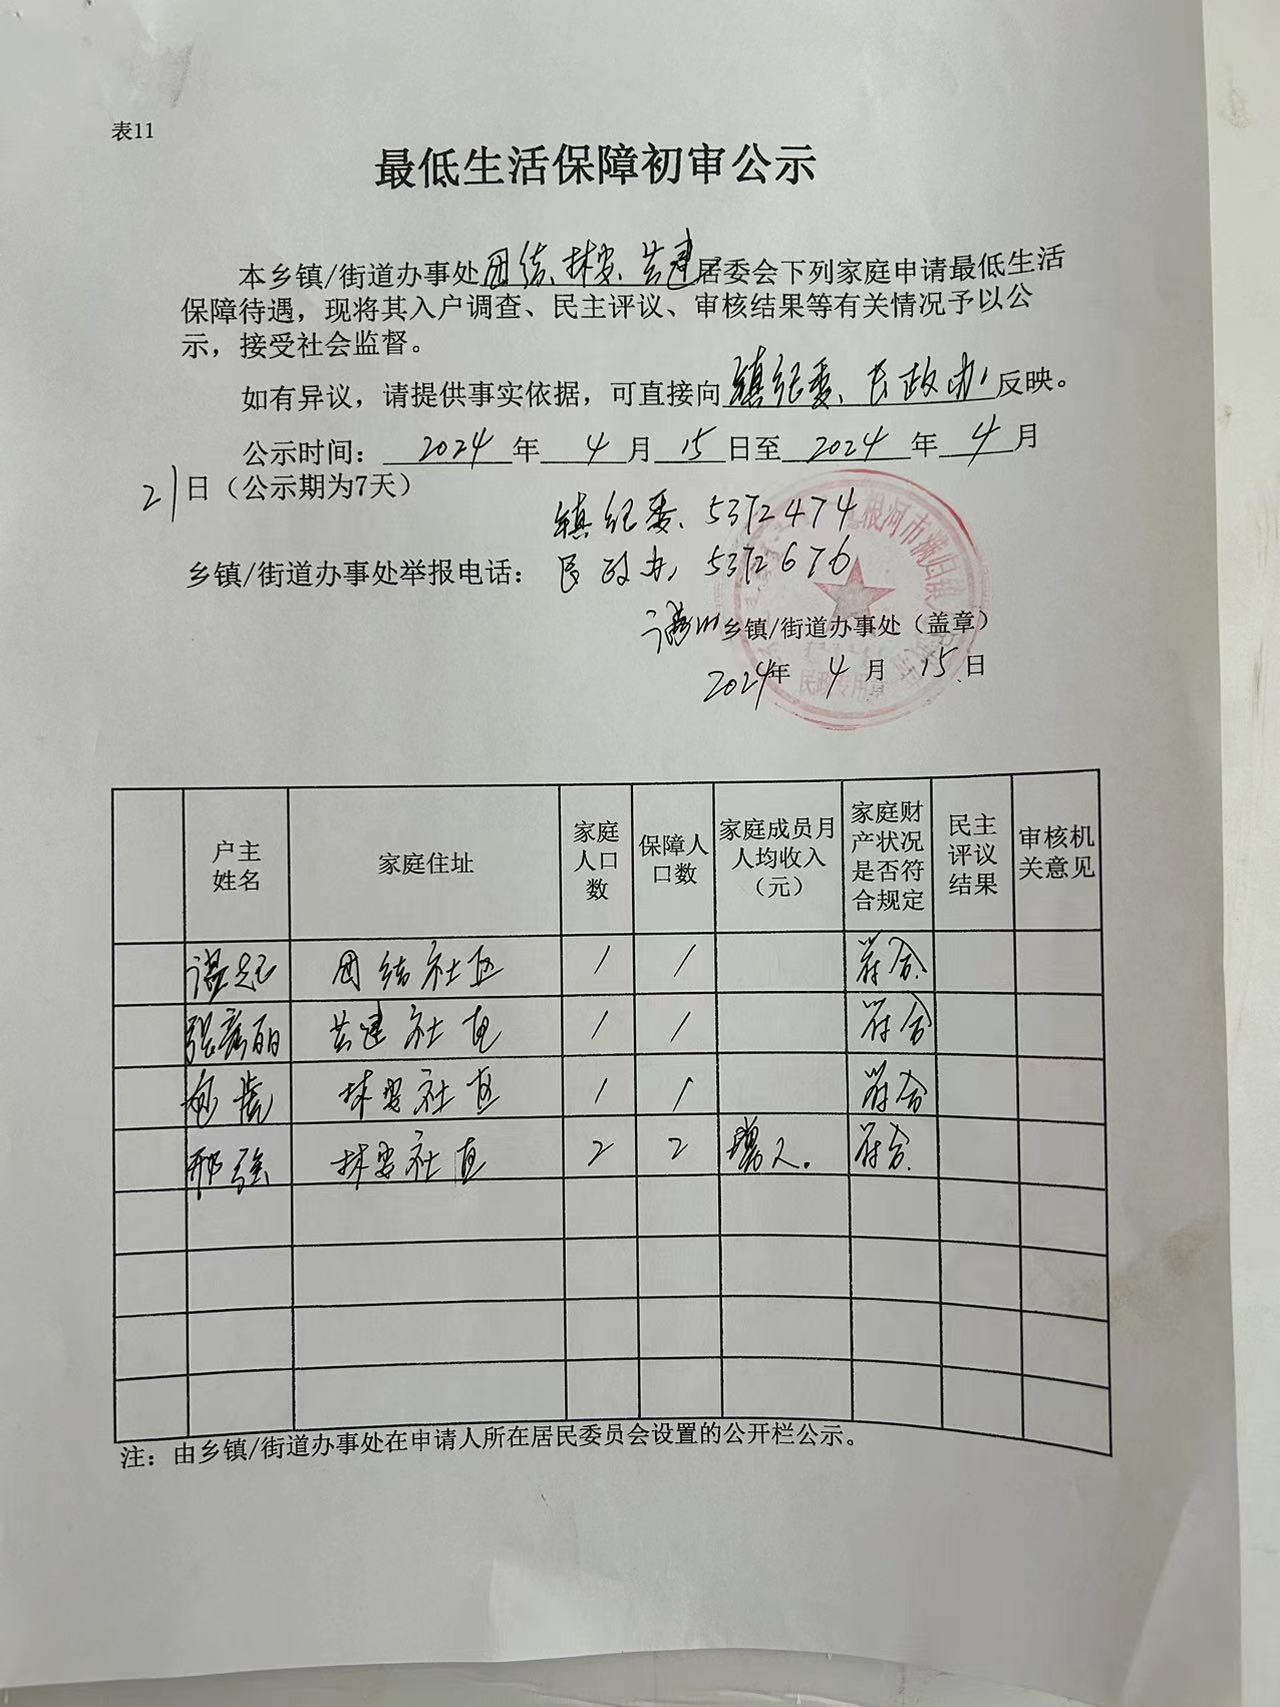 表11
最低生活保障初审公示
本乡镇/街道办事处团结、林安、共建居委会下列家庭申请最低生活
保障待遇，现将其入户调查、民主评议、审核结果等有关情况予以公
示，接受社会监督。
如有异议，请提供事实依据，可直接向镇纪委、民政办反映。
公示时间：2024年4月15日至2024年4月
21日（公示期为7天）
镇纪委、5372474
乡镇/街道办事处举报电话：民政办、5372676
满归乡镇/街道办事处（盖章）
2024年4月15日
根河市满归镇
民政专用章
户主姓名 家庭住址 家庭人口数 保障人口数 家庭成员月人均收入（元） 家庭财产状况是否符合规定 民主评议结果 审核机关意见
团结社区 1 1 符合
共建社区 1 1 符合
林安社区 1 1 符合
邢强 林安社区 2 2 符合
注：由乡镇/街道办事处在申请人所在居民委员会设置的公开栏公示。